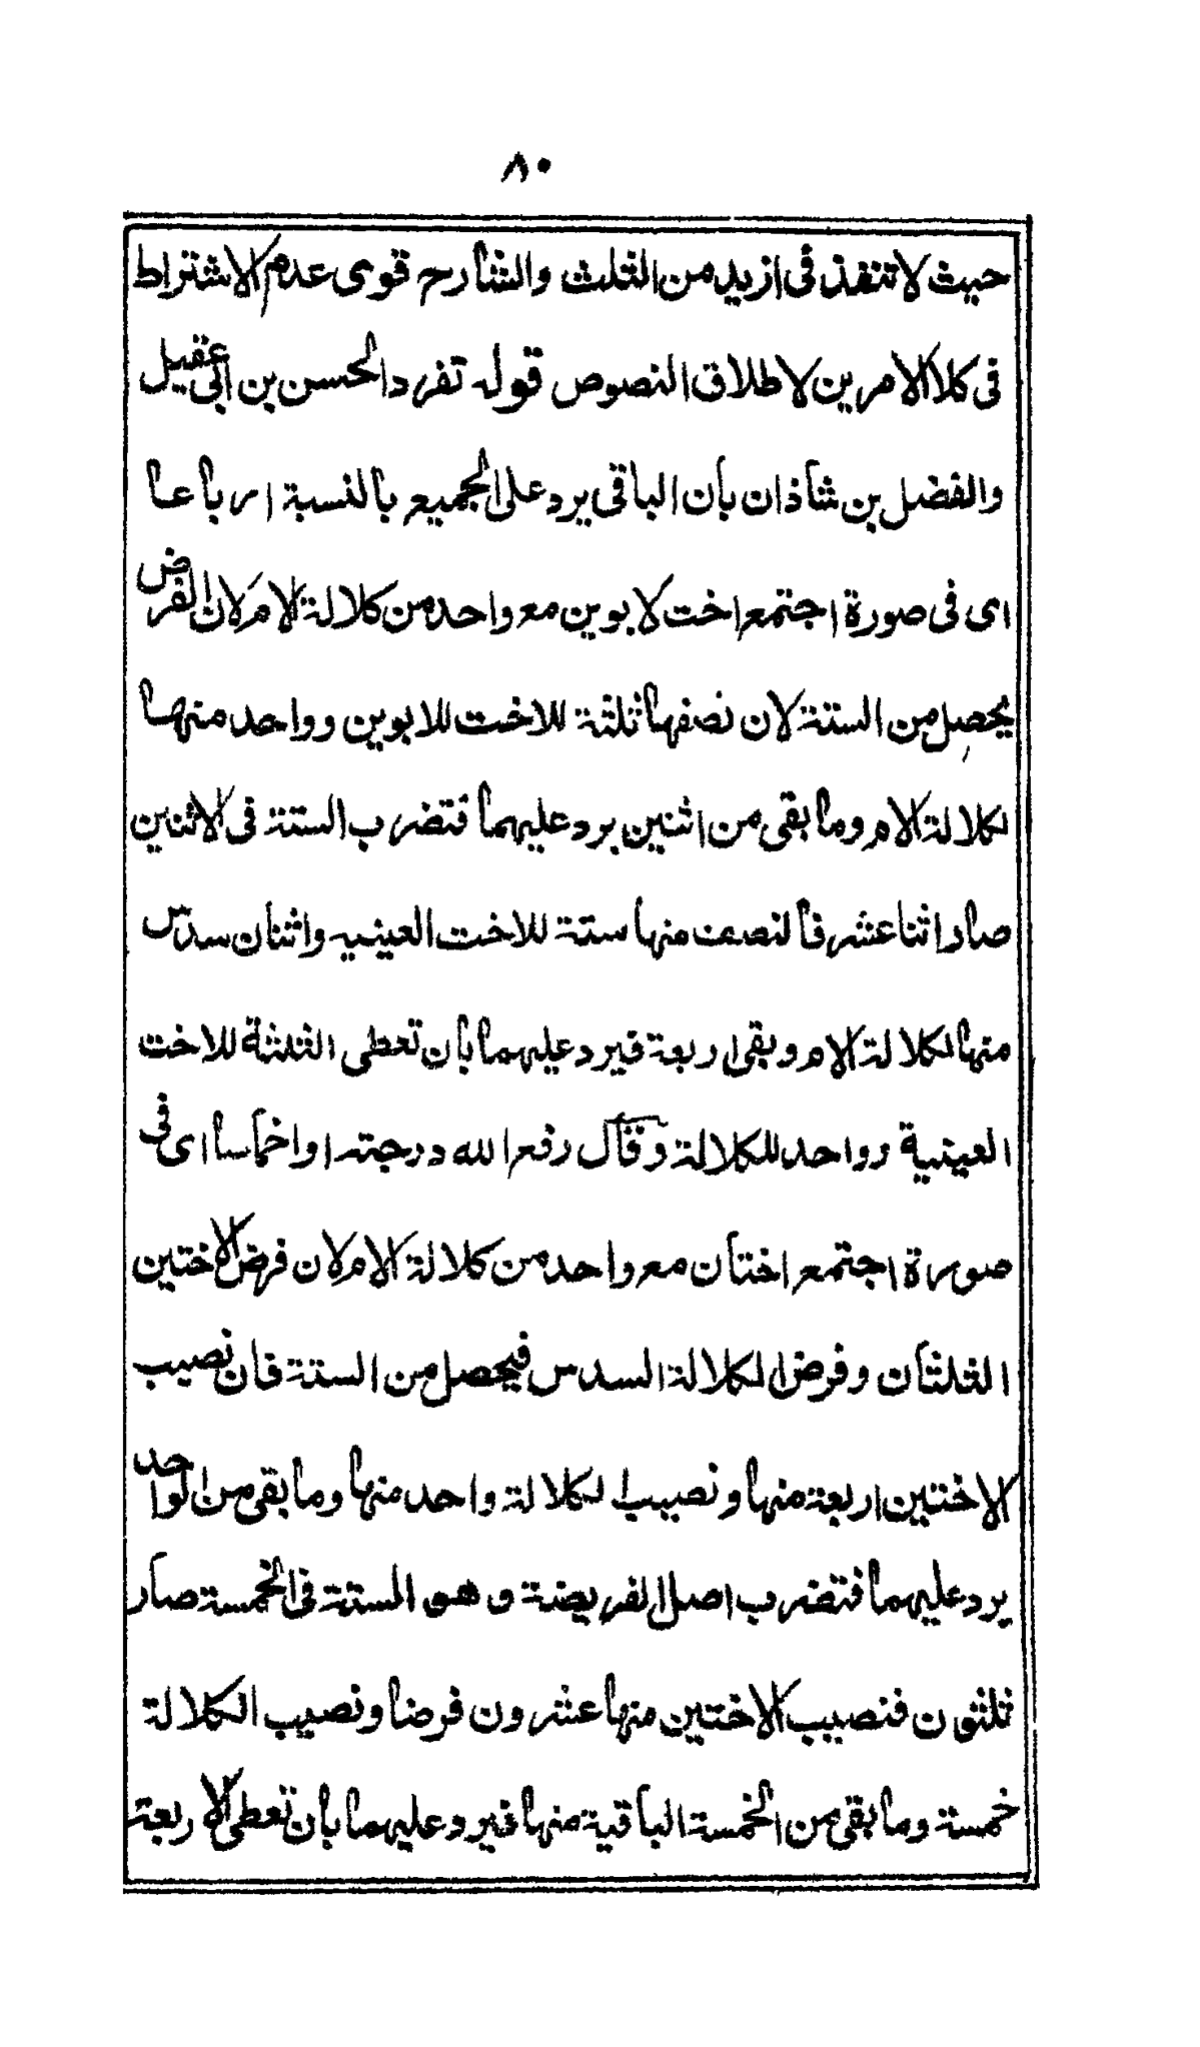 ٨٠
حيث لا تنفذ فى ازيد من الثلث والشارح قوى عدم الاشتراط
فى كلا الامرين لاطلاق النصوص قوله تفرد الحسن بن ابى عقيل
والفضل بن شاذان بان الباقى يرد على الجميع بالنسبة ارباعا
اى فى صورة اجتمع اخت لابوين مع واحد من كلالة الام لان الفرض
يحصل من الستة لان نصفها ثلثة للاخت للابوين وواحد منها
لكلالة الام وما بقى من اثنين يرد عليهما فتضرب الستة فى الاثنين
صار اثنا عشر فالنصف منها ستة للاخت العينيه واثنان سدس
منها لكلالة الام وبقى اربعة فيرد عليهما بان تعطى الثلثة للاخت
العينية وواحد للكلالة وقال رفع الله درجته او اخماسا اى فى
صورة اجتمع اختان مع واحد من كلالة الام لان فرض الاختين
الثلثان وفرض الكلالة السدس فيحصل من الستة فان نصيب
الاختين اربعة منها ونصيب الكلالة واحد منها وما بقى من الواحد
يرد عليهما فتضرب اصل الفريضة وهو الستة فى الخمسة صار
ثلثون فنصيب الاختين منها عشرون فرضا ونصيب الكلالة
خمسة وما بقى من الخمسة الباقية منها فيرد عليهما بان تعطى الاربعة